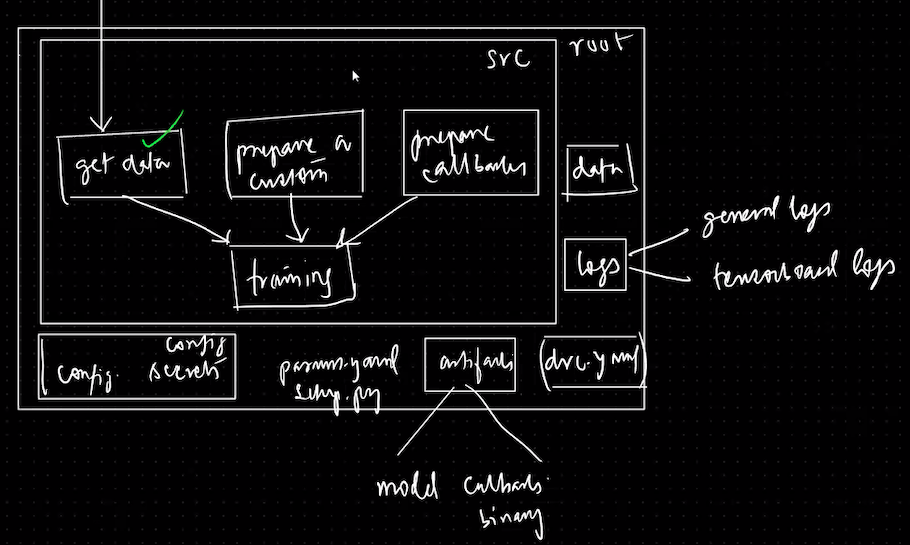 root
src
get data
prepare a
custom
prepare
callbacks
training
data
logs
general logs
tensorboard logs
config.
config
secrets
params.yaml
setup.py
artifacts
dvc.yaml
model
callbacks
binary